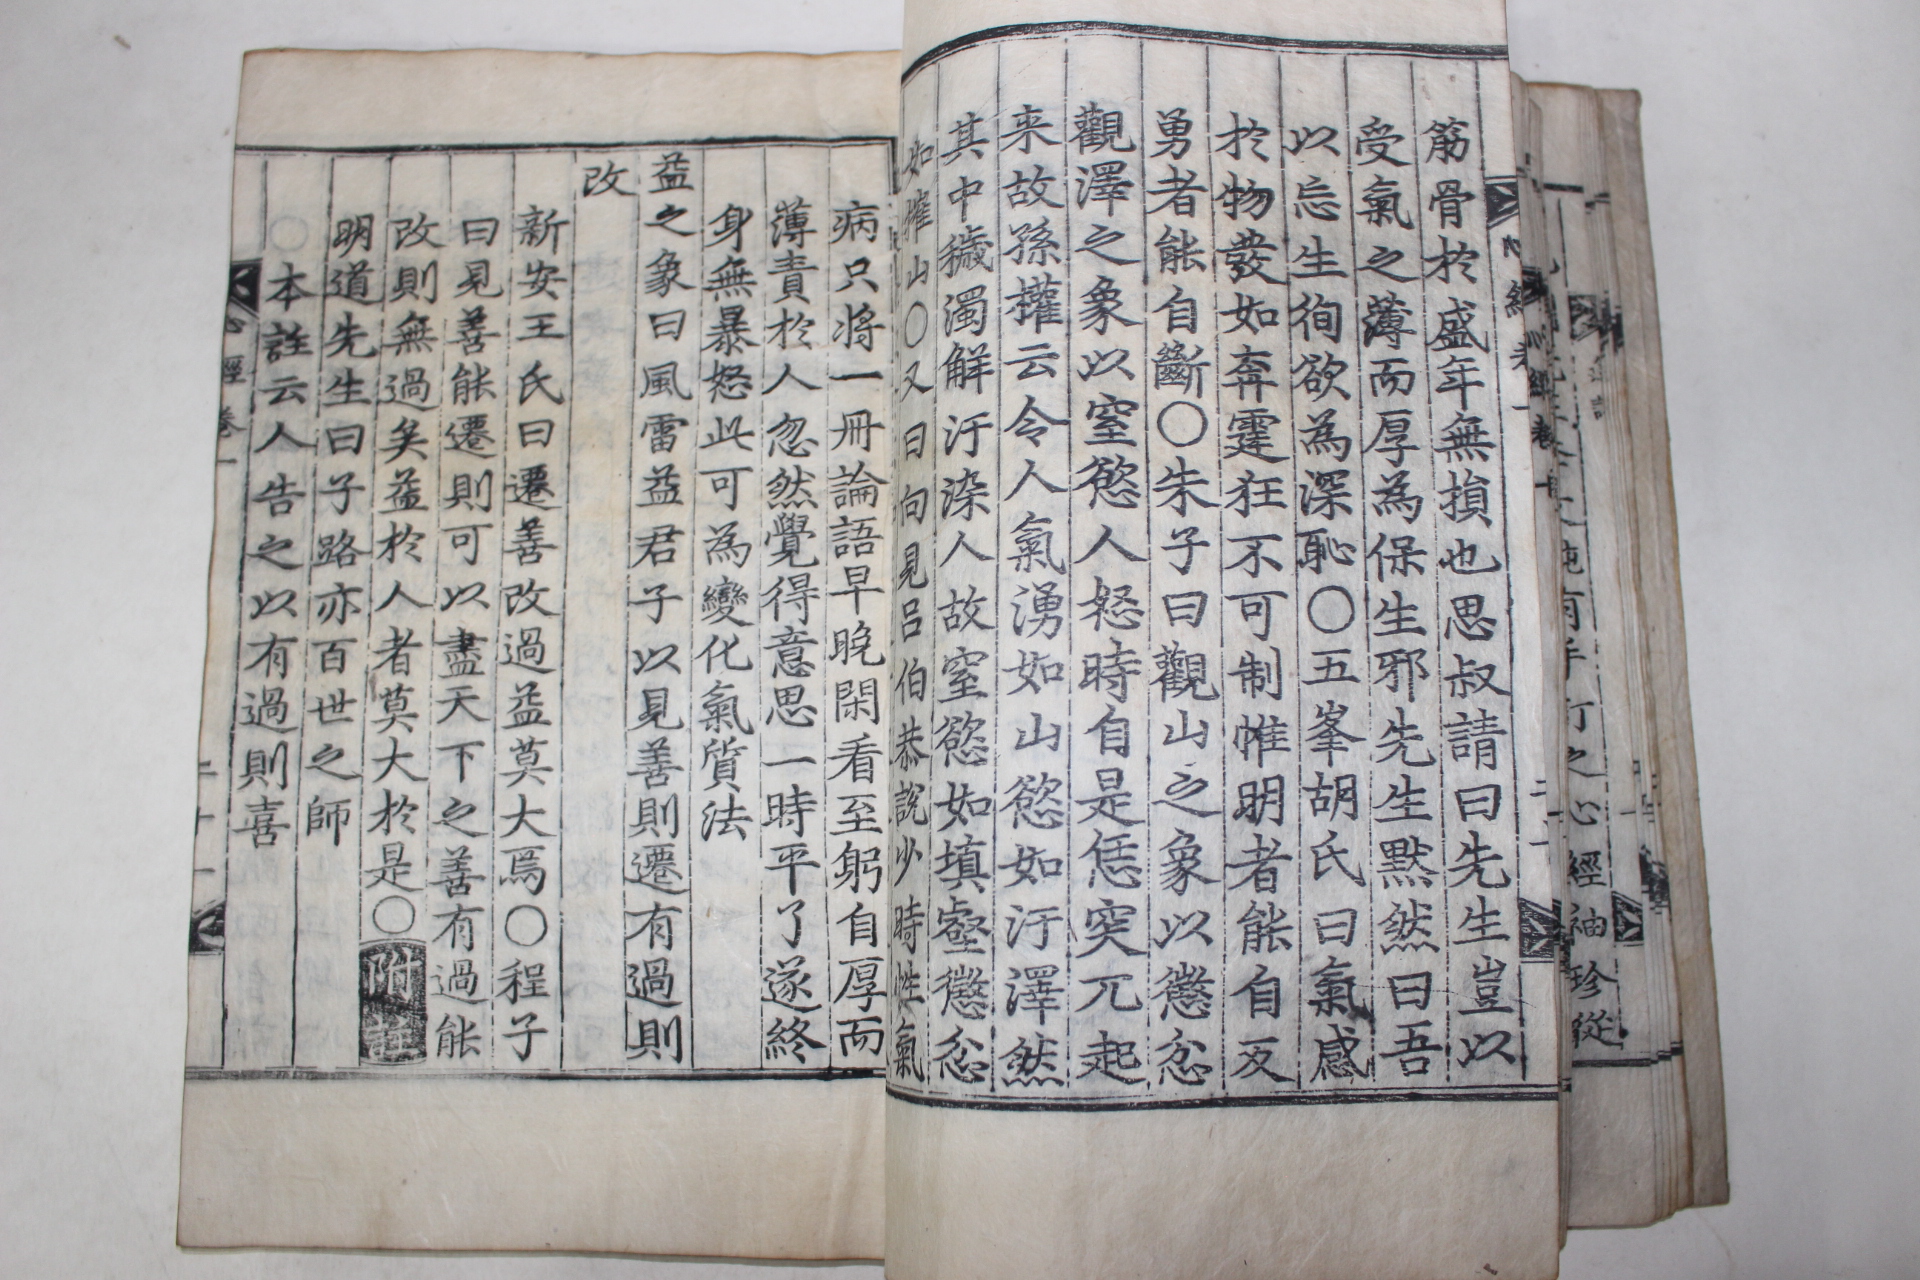 筋骨於盛年無損也思叔請曰先生豈以
受氣之薄而厚為保生邪先生黙然曰吾
以忘生徇欲為深恥○五峯胡氏曰氣感
於物發如奔霆狂不可制惟明者能自反
勇者能自斷○朱子曰觀山之象以懲忿
觀澤之象以窒慾人怒時自是恁突兀起
来故孫權云令人氣湧如山慾如汙澤然
其中穢濁解汙染人故窒慾如塡壑懲忿
如摧山○又曰向見呂伯恭說少時性氣
病只将一冊論語早晚閑看至躬自厚而
薄責於人忽然覺得意思一時平了遂終
身無暴怒此可為變化氣質法
益之象曰風雷益君子以見善則遷有過則
改
新安王氏曰遷善改過益莫大焉○程子
曰見善能遷則可以盡天下之善有過能
改則無過矣益於人者莫大於是○附註
明道先生曰子路亦百世之師
○本註云人告之以有過則喜
心經 卷一
二十一